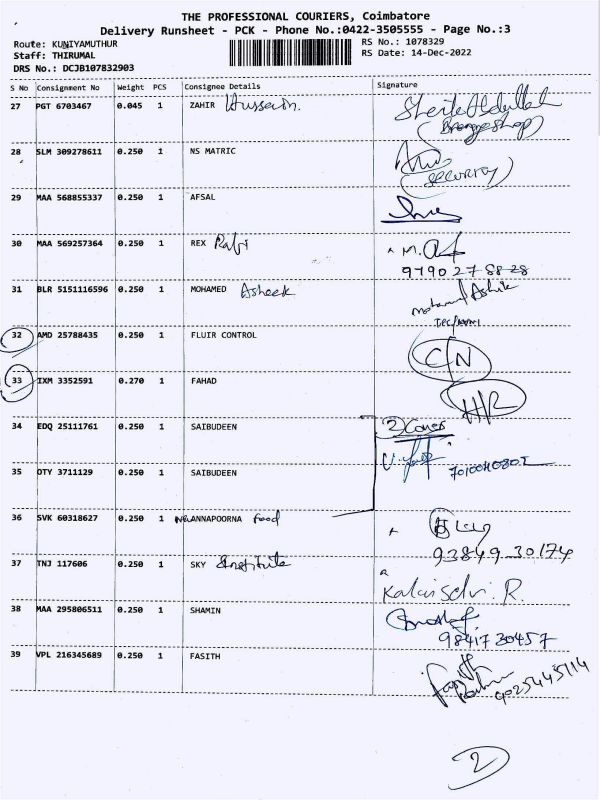 THE PROFESSIONAL COURIERS, Coimbatore
Delivery Runsheet - PCK - Phone No.:0422-3505555 - Page No.:3
Route: KUNIYAMUTHUR
RS No.: 1078329
Staff: THIRUMAL
RS Date: 14-Dec-2022
DRS No.: DCJB107832903
S No Consignment No Weight PCS Consignee Details Signature
27 PGT 6703467 0.045 1 ZAHIR Hussain.
28 SLM 309278611 0.250 1 NS MATRIC
(SECURITY)
29 MAA 568855337 0.250 1 AFSAL
30 MAA 569257364 0.250 1 REX Rafi M.
97902 75828
31 BLR 5151116596 0.250 1 MOHAMED Asheek Mohamed Ashik
32 AMD 25788435 0.250 1 FLUIR CONTROL C/N
33 IXM 3352591 0.270 1 FAHAD
34 EDQ 25111761 0.250 1 SAIBUDEEN 2 Cover
35 OTY 3711129 0.250 1 SAIBUDEEN
36 SVK 60318627 0.250 1 ANNAPOORNA food
93849 30174
37 TNJ 117606 0.250 1 SKY Institute
Kalaiselvi. R.
38 MAA 295806511 0.250 1 SHAMIN
9841730457
39 VPL 216345689 0.250 1 FASITH
2